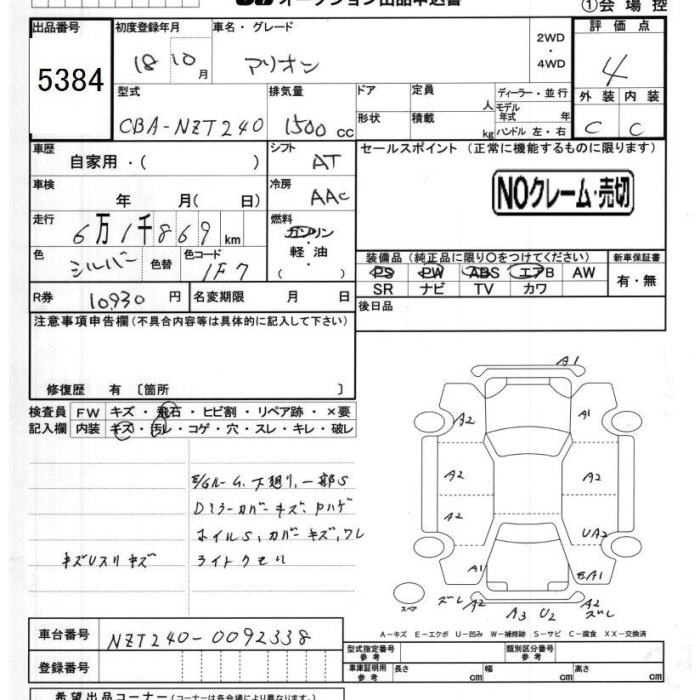 オークション出品申込書
①会場控
出品番号 初度登録年月 車名・グレード 2WD・4WD 評価点
5384 18 10月 アリオン 4
型式 排気量 ドア 定員 人 ディーラー・並行 外装 内装
CBA-NZT240 1500cc 形状 積載 kg モデル年式 年 ハンドル 左・右 C C
車歴 自家用・( ) シフト AT セールスポイント (正常に機能するものに限ります)
車検 年 月(日) 冷房 AAC NOクレーム・売切
走行 6万1千869km 燃料 ガソリン 軽油 ( )
色 シルバー 色替 色コード 1F7 装備品 (純正品に限り〇をつけてください) 新車保証書
PS PW ABS エアB AW 有・無
SR ナビ TV カワ
R券 10930円 名変期限 月 日 後日品
注意事項申告欄 (不具合内容等は具体的に記入して下さい)
修復歴 有 〔箇所 〕
検査員 FW キズ・飛石・ヒビ割・リペア跡・×要
記入欄 内装 キズ・汚レ・コゲ・穴・スレ・キレ・破レ
E/Gルーム、下廻り、一部S
Dミラーカバーキズ、Pハゲ
ホイルS、カバーキズ、ワレ
キズUスリキズ ライトクモリ
A1
A2 A1
A2 A2
A2 UA2
A1 EA1
スペア ズレ A2 A3 U2 A2 ズレ
A-キズ E-エクボ U-凹み W-補修跡 S-サビ C-腐食 XX-交換済
車台番号 NZT240-0092338
型式指定番号 参考 類別区分番号 参考
登録番号 車庫証明用 参考 長さ cm 幅 cm 高さ cm
希望出品コーナー (コーナーは各会場により異なります)